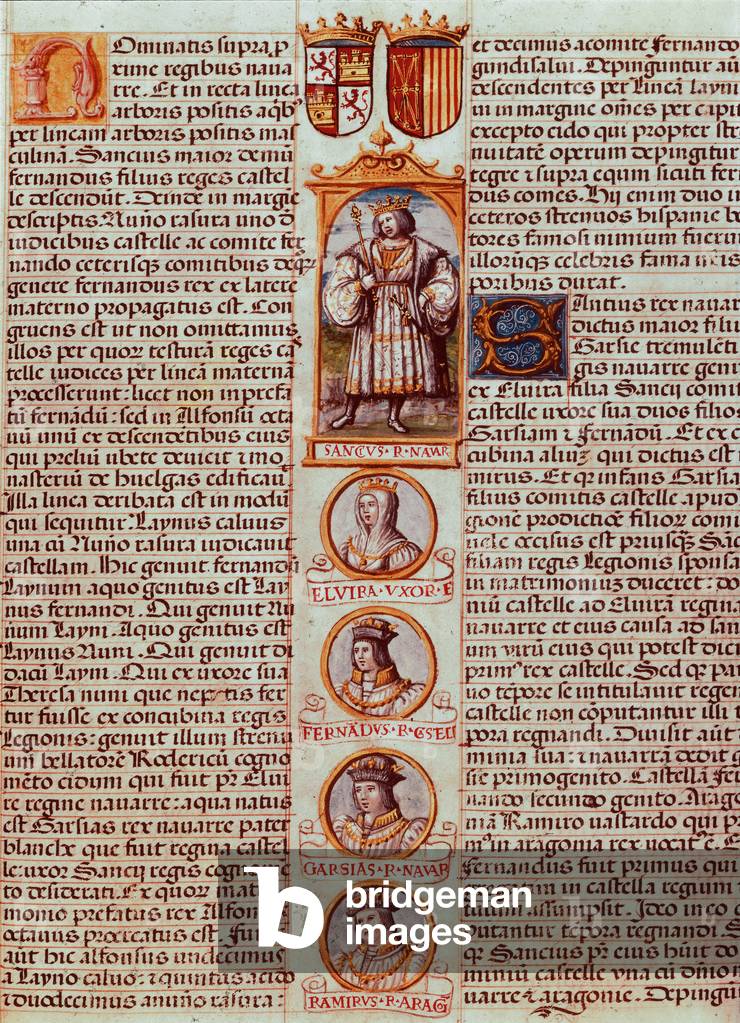 Ominatis supra p
rime regibus naua
rre. Et in recta linea
arboris positis aqb9
per lineam arboris positis mas
culinā. Sancius maior demū
fernandus filius reges castel
le descendūt. Deinde in margīe
descriptis. Nuño rasura uno d
iudicibus castelle ac comite fer
nando ceterisq; comitibus
genere fernandus rex ex latere
materno propagatus est. Con
gruens est ut non omittamus
illos per quor testurā reges ca
telle iudices per lineā maternā
processerunt: licet non in prefa
tū fernādū: sed in Alfonsū octa
uū unū ex descēdētibus eius
qui preliū ubete deuicit ⁊ mo
nasteriū de huelgas edificauit
Illa linea deribata est in modū
qui sequitur. Laynus caluus
una cū Nuño rasura iudicauit
castellam. Hic genuit fernandū
Laynum aquo genitus est Lay
nus fernandi. Qui genuit Nu
num Layni. Aquo genitus est
Laynus Nuni. Qui genuit di
dacū Layni. Qui ex uxore sua
Theresa nuni que neptis fer
tur fuisse ex concubina regis
Legionis: genuit illum strenu
um bellatorē Rodericū cogno
mēto cidum qui fuit pr̄ Elui
re regine nauarre: aqua natus
est Garsias rex nauarre pater
blanche que fuit regina castel
le: uxor Sancij regis cognome
to desiderati. Ex quor matri
monio prefatus rex Alfonsus
octauus procreatus est. Fuit
aūt hic alfonsus undecimus
a Layno caluo: ⁊ quintus acido
⁊ duodecimus anuño rasura:
SANCIVS · R · NAVAR
ELVIRA · VXOR · E
FERNĀDVS · R · CSTELL
GARSIAS · R · NAVAR
RAMIRVS · R · ARAGŌ
et decimus acomite fernando
gundisalui. Depinguntur aū
descendentes per lineā layni
ui in margine om̄es per capi
excepto cido qui propter str
nuitatē operum depingitur
tegre ⁊ supra equm sicuti fer
dus comes. Hij enim duo in
ceteros strenuos hispanie be
tores famosi nimium fuerūt
illorūq; celebris fama
poribus durat.
Antius rex nauar
dictus maior filiu
Garsie tremulēti
gis nauarre genu
ex Eluira filia Sancij comi
castelle uxore sua duos filios
Garsiam ⁊ fernādū. Et ex c
cubina aliuz qui dictus est
mirus. Et q infans Garsia
filius comitis castelle apud
gionē prodictiōē filior comi
uele occisus est priusq; San
filiam regis Legionis sponsa
in matrimoniuz duceret: do
niū castelle ad Eluirā reginā
nauarre et eius causa ad san
um virū eius qui potest dici
prim9 rex castelle. Sed q pa
uo tēpore se intitulauit regem
castelle non cōputantur illi t
pora regnandi. Diuisit aūt
minia sua: ⁊ nauarrā dedit g
sie primogenito. Castellā fer
nando secundo genito. Arago
niā Ramiro bastardo qui pr
m9 in aragonia rex uocat9 ē. E
Fernandus fuit primus qui
in castella regium
assumpsit. Ideo in eo
putantur tēpora regnandi. S
q Sancius pr̄ eius hūit do
miniū castelle una cū dn̄io n
uarre ⁊ aragonie. Depingū
bridgeman
images